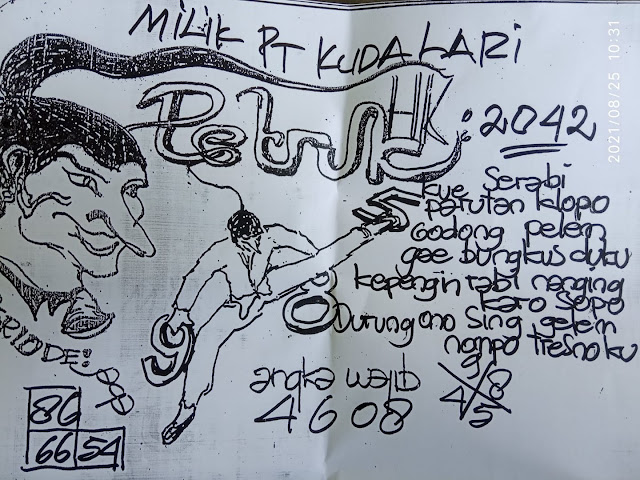 MILIK PT KUDA LARI
2021/08/25 10:31
Petruk HK : 2042
kue Serabi
parutan klopo
Godong pelem
gae bungkus duku
kepengin rabi nanging
karo sopo
Durung ono Sing gelem
nganpo tresno ku
5
8
9
angka wajib
4608
9/8
4/5
86
66 54